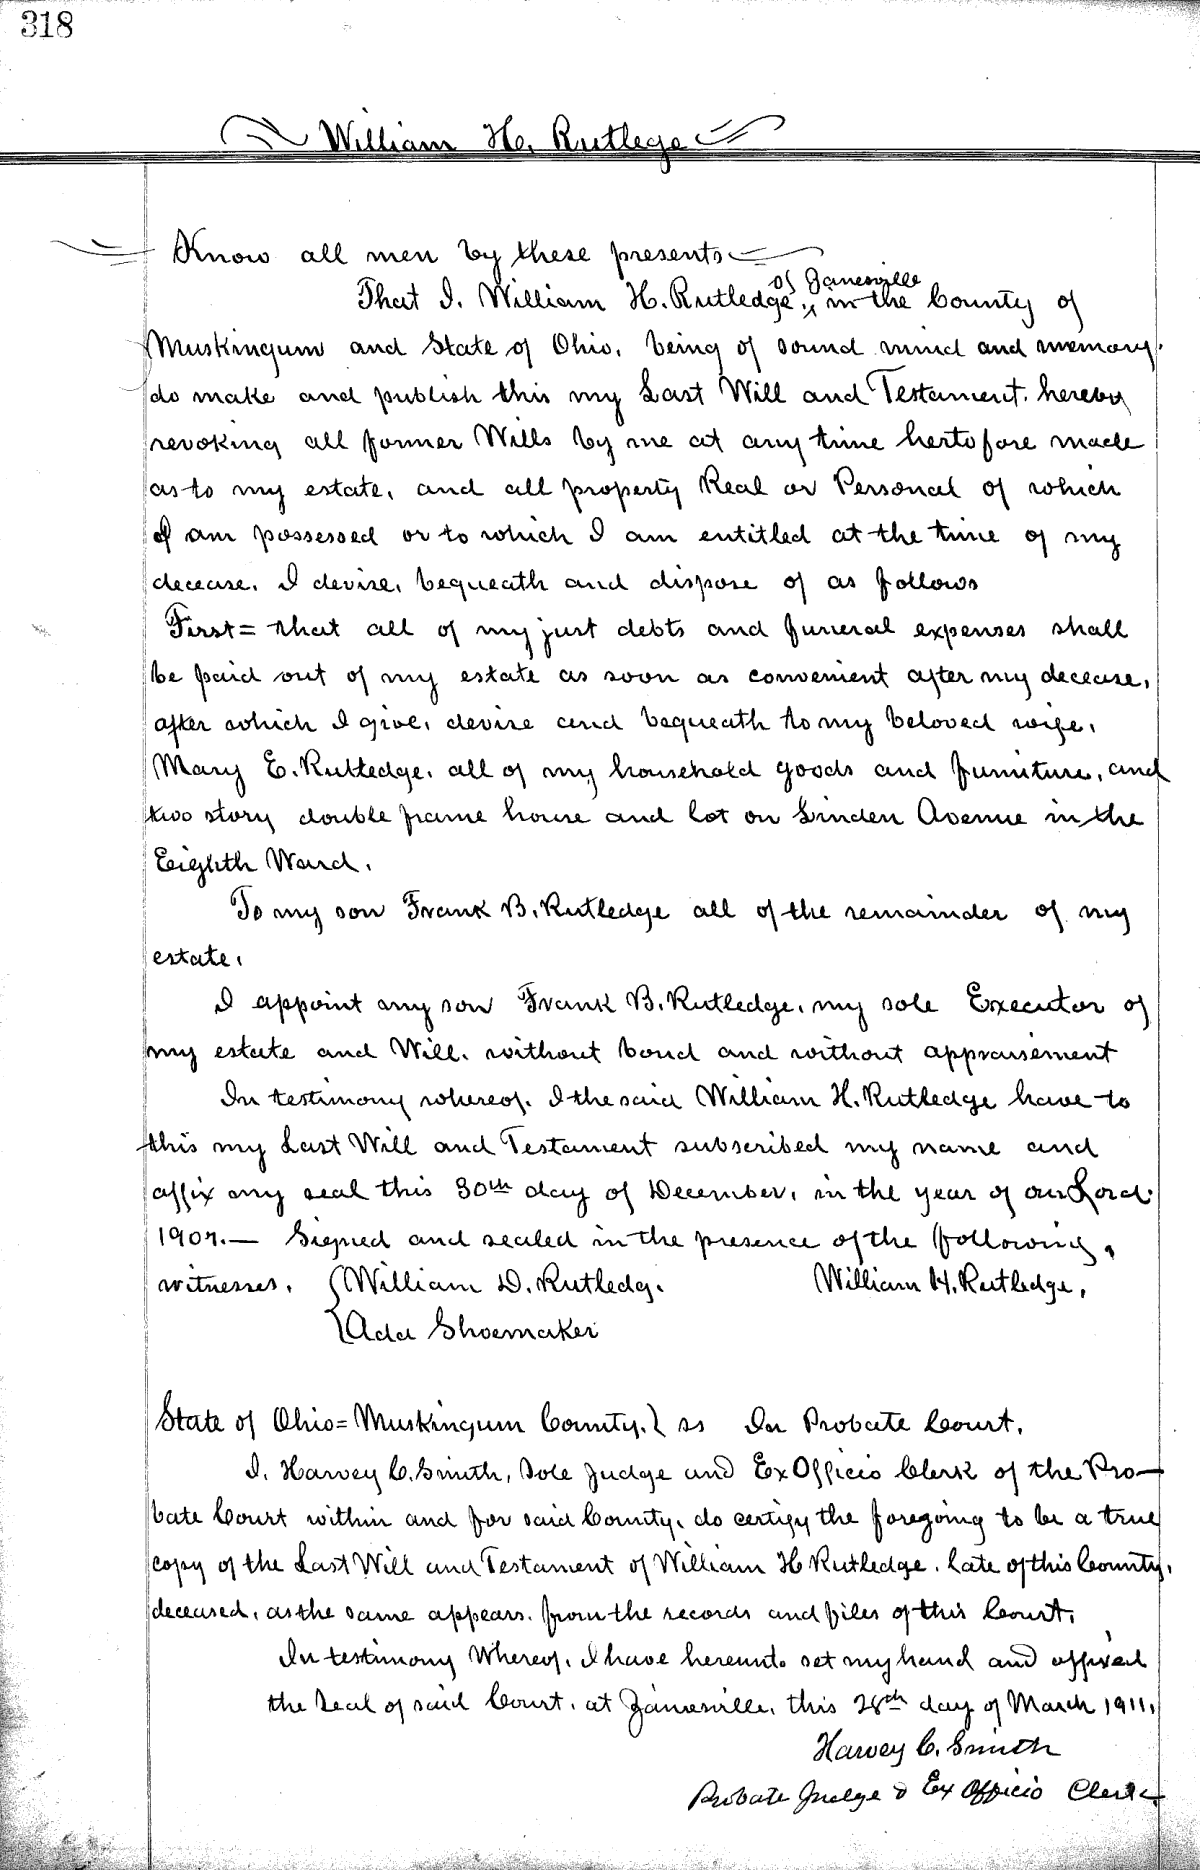 318
William H. Rutlege
Know all men by these presents
of Zanesville
That I, William H. Rutledge, in the County of
Muskingum and State of Ohio, being of sound mind and memory,
do make and publish this my Last Will and Testament, hereby
revoking all former Wills by me at any time hertofore made
as to my estate, and all property Real or Personal of which
I am possessed or to which I am entitled at the time of my
decease, I devise, bequeath and dispose of as follows
First = that all of my just debts and funeral expenses shall
be paid out of my estate as soon as convenient after my decease,
after which I give, devise and bequeath to my beloved wife,
Mary E. Rutledge, all of my household goods and furniture, and
two story double frame house and lot on Linden Avenue in the
Eighth Ward.
To my son Frank B. Rutledge all of the remainder of my
estate.
I appoint my son Frank B. Rutledge, my sole Executor of
my estate and Will, without bond and without appraisement
In testimony whereof, I the said William H. Rutledge have to
this my Last Will and Testament subscribed my name and
affix my seal this 30th day of December, in the year of our Lord
1907.— Signed and sealed in the presence of the following,
witnesses. { William D. Rutledg. William H. Rutledge,
{ Ada Shoemaker
State of Ohio = Muskingum County, } ss In Probate Court.
I, Harvey C. Smith, Sole Judge and Ex Officio Clerk of the Pro-
bate Court within and for said County, do certify the foregoing to be a true
copy of the Last Will and Testament of William H Rutledge, late of this County,
deceased, as the same appears, from the records and files of this Court.
In testimony Whereof, I have hereunto set my hand and affixed
the Seal of said Court, at Zanesville, this 28th day of March 1911.
Harvey C. Smith
Probate Judge & Ex Officio Clerk